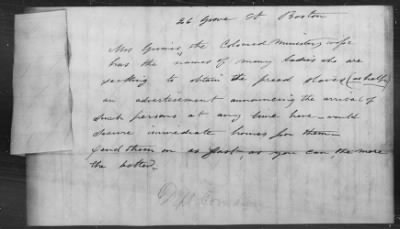 26 Grove St Boston
Mrs Grimes, the Colored Ministers wife
has the names of many ladies who are
seeking to obtain the freed slaves
an advertisement announcing the arrival of
such persons at any time here would
secure immediate homes for them
Send them on as fast, as you can, the more
the better.